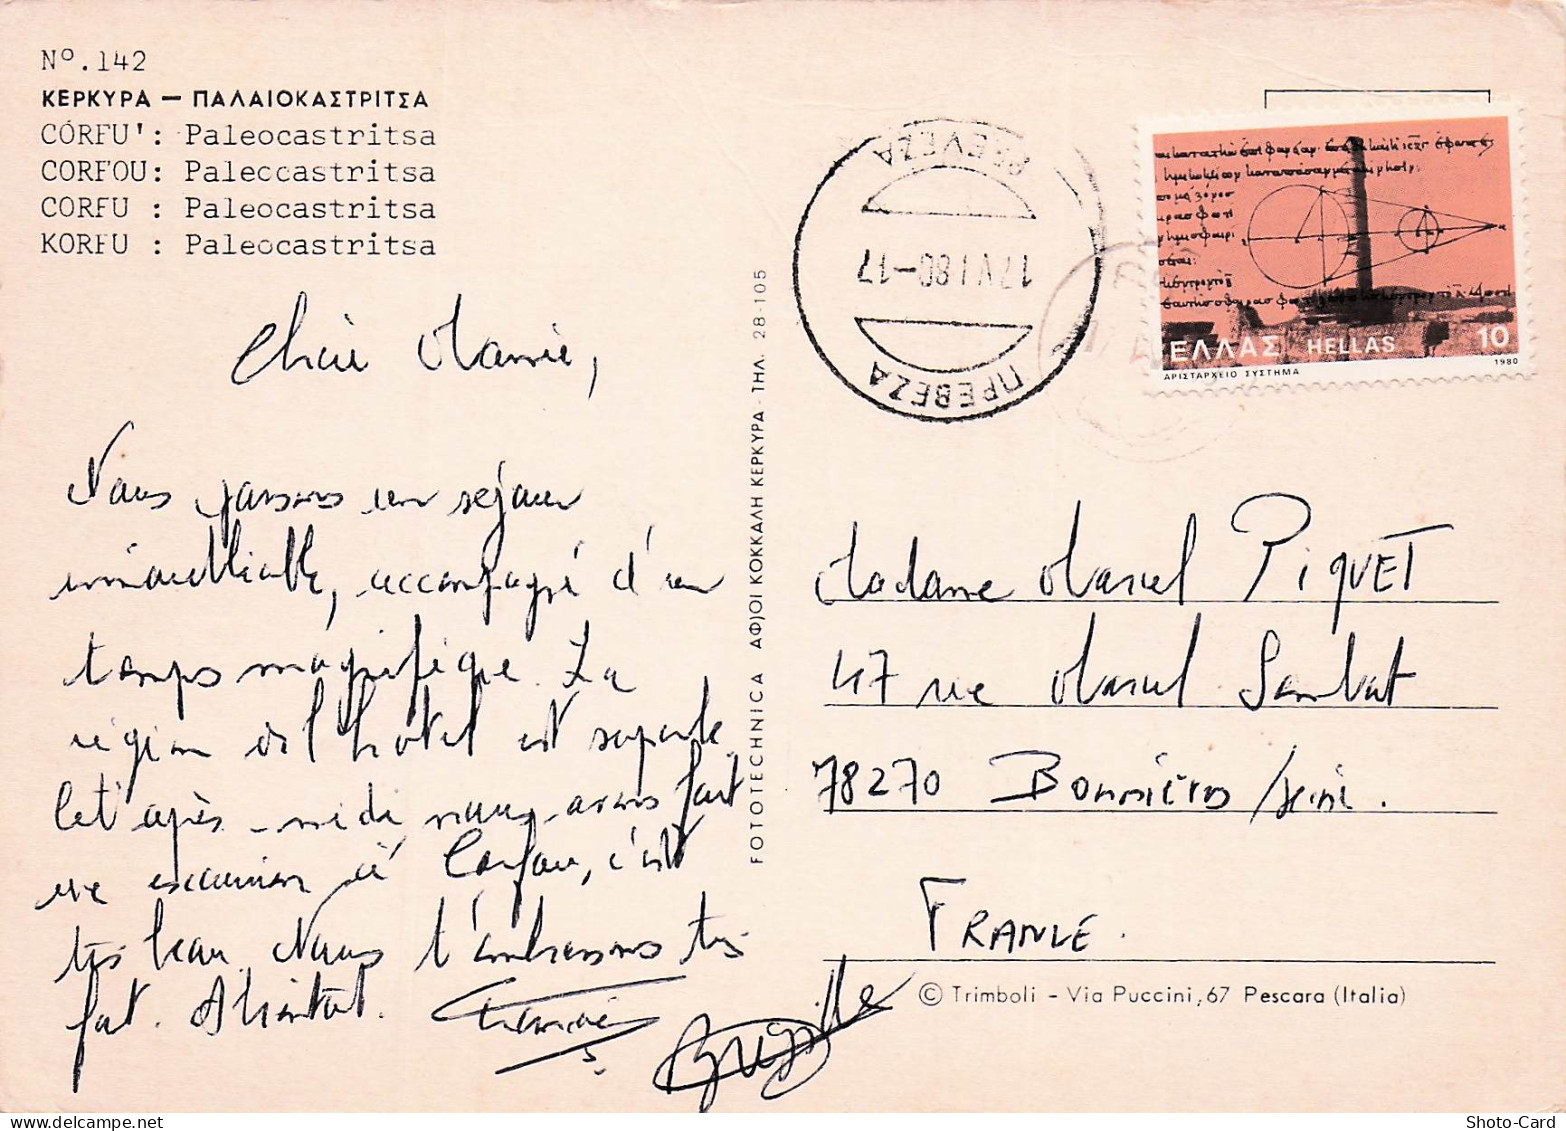 Nº.142
ΚΕΡΚΥΡΑ — ΠΑΛΑΙΟΚΑΣΤΡΙΤΣΑ
CÓRFU': Paleocastritsa
CORFOU: Paleocastritsa
CORFU : Paleocastritsa
KORFU : Paleocastritsa
Chère Mamie,
Nous passons un séjour
inoubliable, accompagné d'un
temps magnifique. La
région de l'hotel est superbe
cet après-midi nous avons fait
une excursion à Corfou, c'est
très beau. Nous t'embrassons très
fort. A bientot.
Brigitte
FOTOTECHNICA ΑΦ)ΟΙ ΚΟΚΚΑΛΗ ΚΕΡΚΥΡΑ - ΤΗΛ. 28-105
ΠΡΕΒΕΖΑ
17 VI 80-17
PREVEZA
ΕΛΛΑΣ HELLAS 10
ΑΡΙΣΤΑΡΧΕΙΟ ΣΥΣΤΗΜΑ 1980
Madame Marcel PIQUET
47 rue Marcel Sembat
78270 Bonnières/seine.
FRANCE.
© Trimboli - Via Puccini, 67 Pescara (Italia)
Shoto-Card